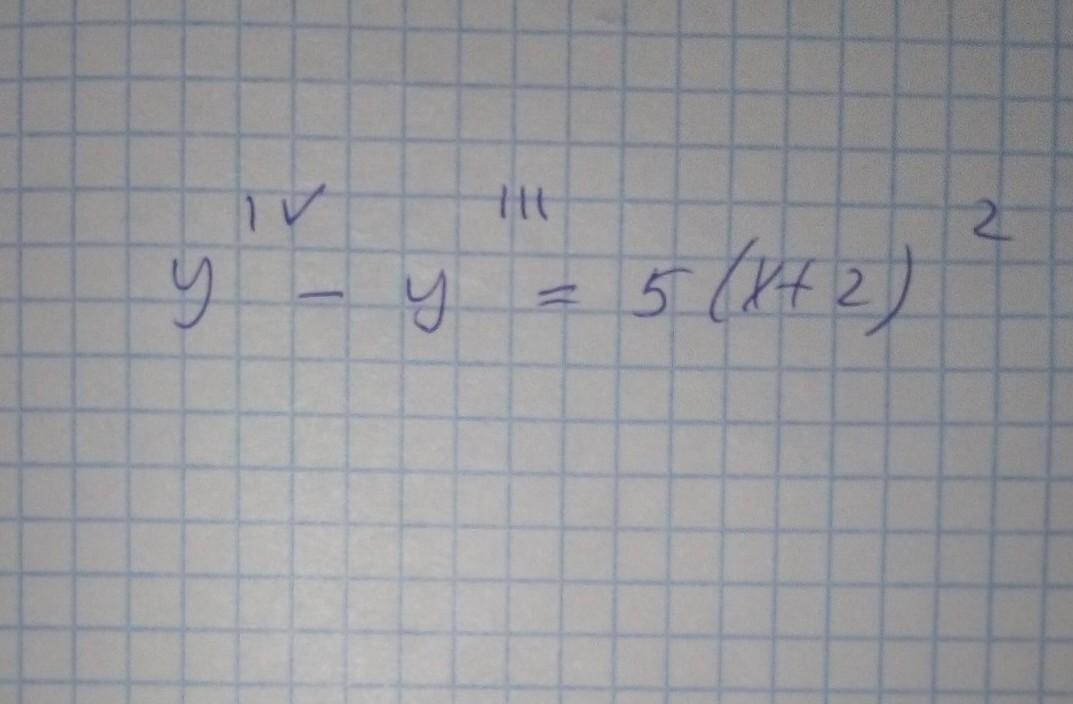 y^IV - y^III = 5(x+2)^2